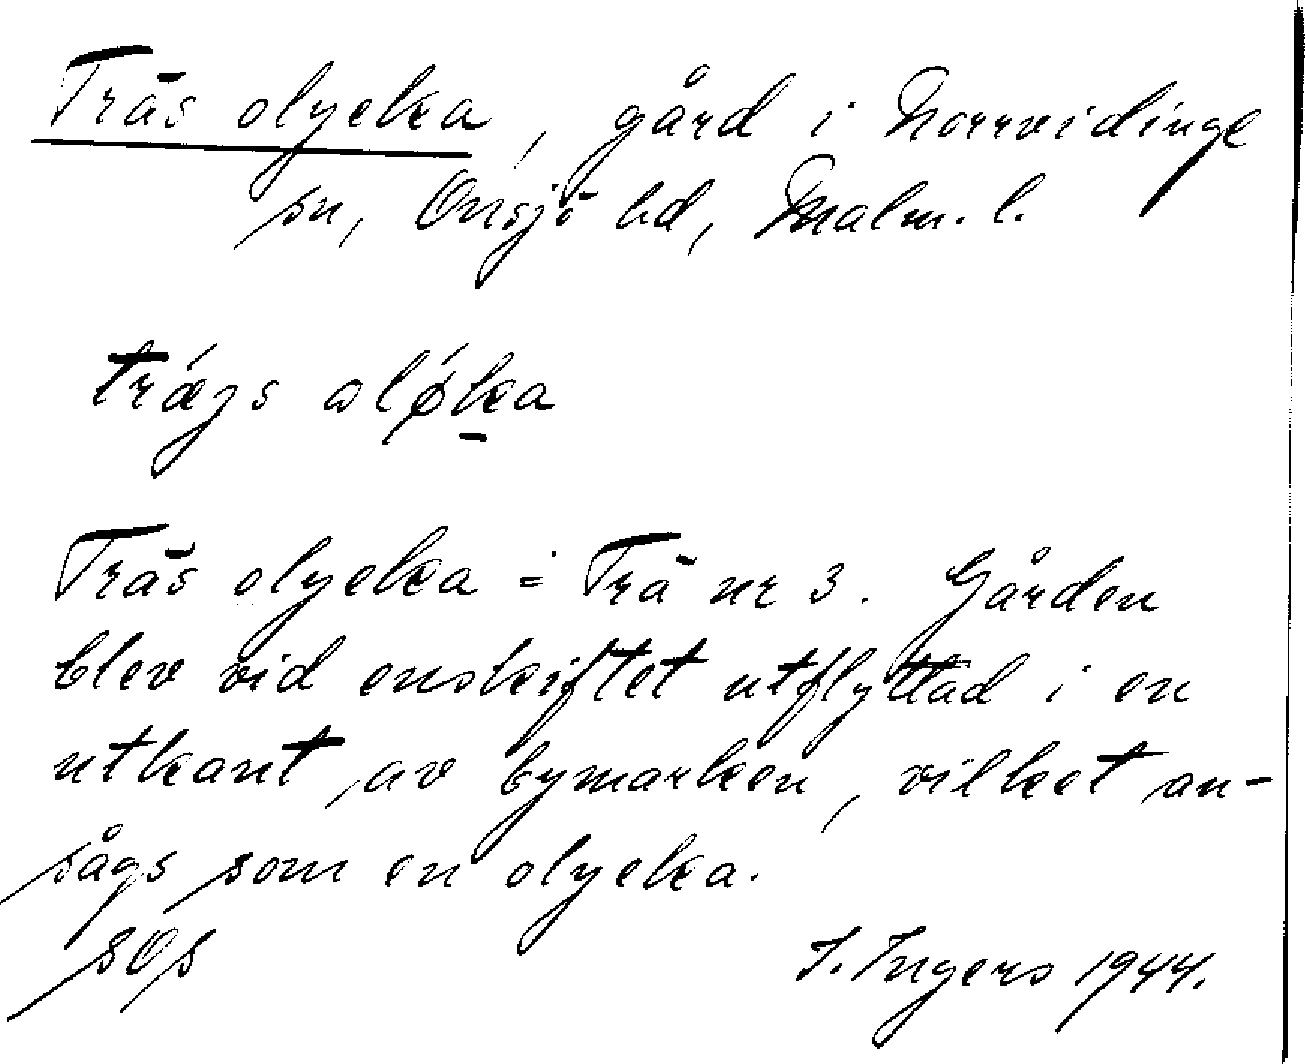 Träs olycka, gård i Norrvidinge
sn, Onsjö hd, Malm. l.
olycka = Trä nr 3. Gården
blev vid enskiftet utflyttad i en
utkant av bymarken, vilket an-
sågs som en olycka.
I. Ingers 1944.